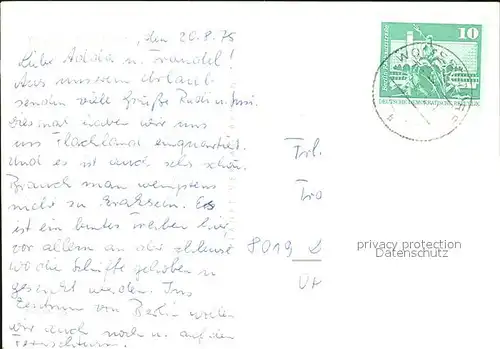 , den 20.8.75
Liebe Adda u. Trandel!
Aus unserem Urlaub
senden viele Grüße Rudi u.
Diesmal haben wir uns
ins Flachland einquartiert.
Und es ist auch sehr schön.
Brauch man wenigstens
nicht zu kraxeln. Es
ist ein buntes Treiben hier,
vor allem an der Schleuse
wo die Schiffe gehoben u
gesenkt werden. Ins
Zentrum von Berlin wollen
wir auch noch u. auf den
Fernsehturm.
10
DEUTSCHE DEMOKRATISCHE REPUBLIK
Frl.
8019 D
privacy protection
Datenschutz